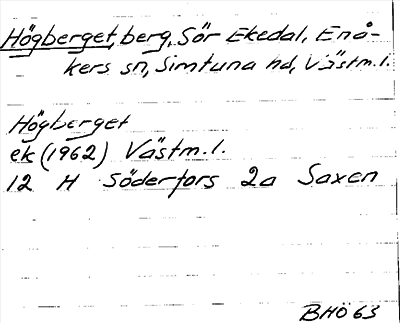 Högberget, berg, Sör Ekedal, Enå-
kers sn, Simtuna hd, Västm.l.
Högberget
ek (1962) Västm.l.
12 H Söderfors 2a Saxen
BHÖ 63